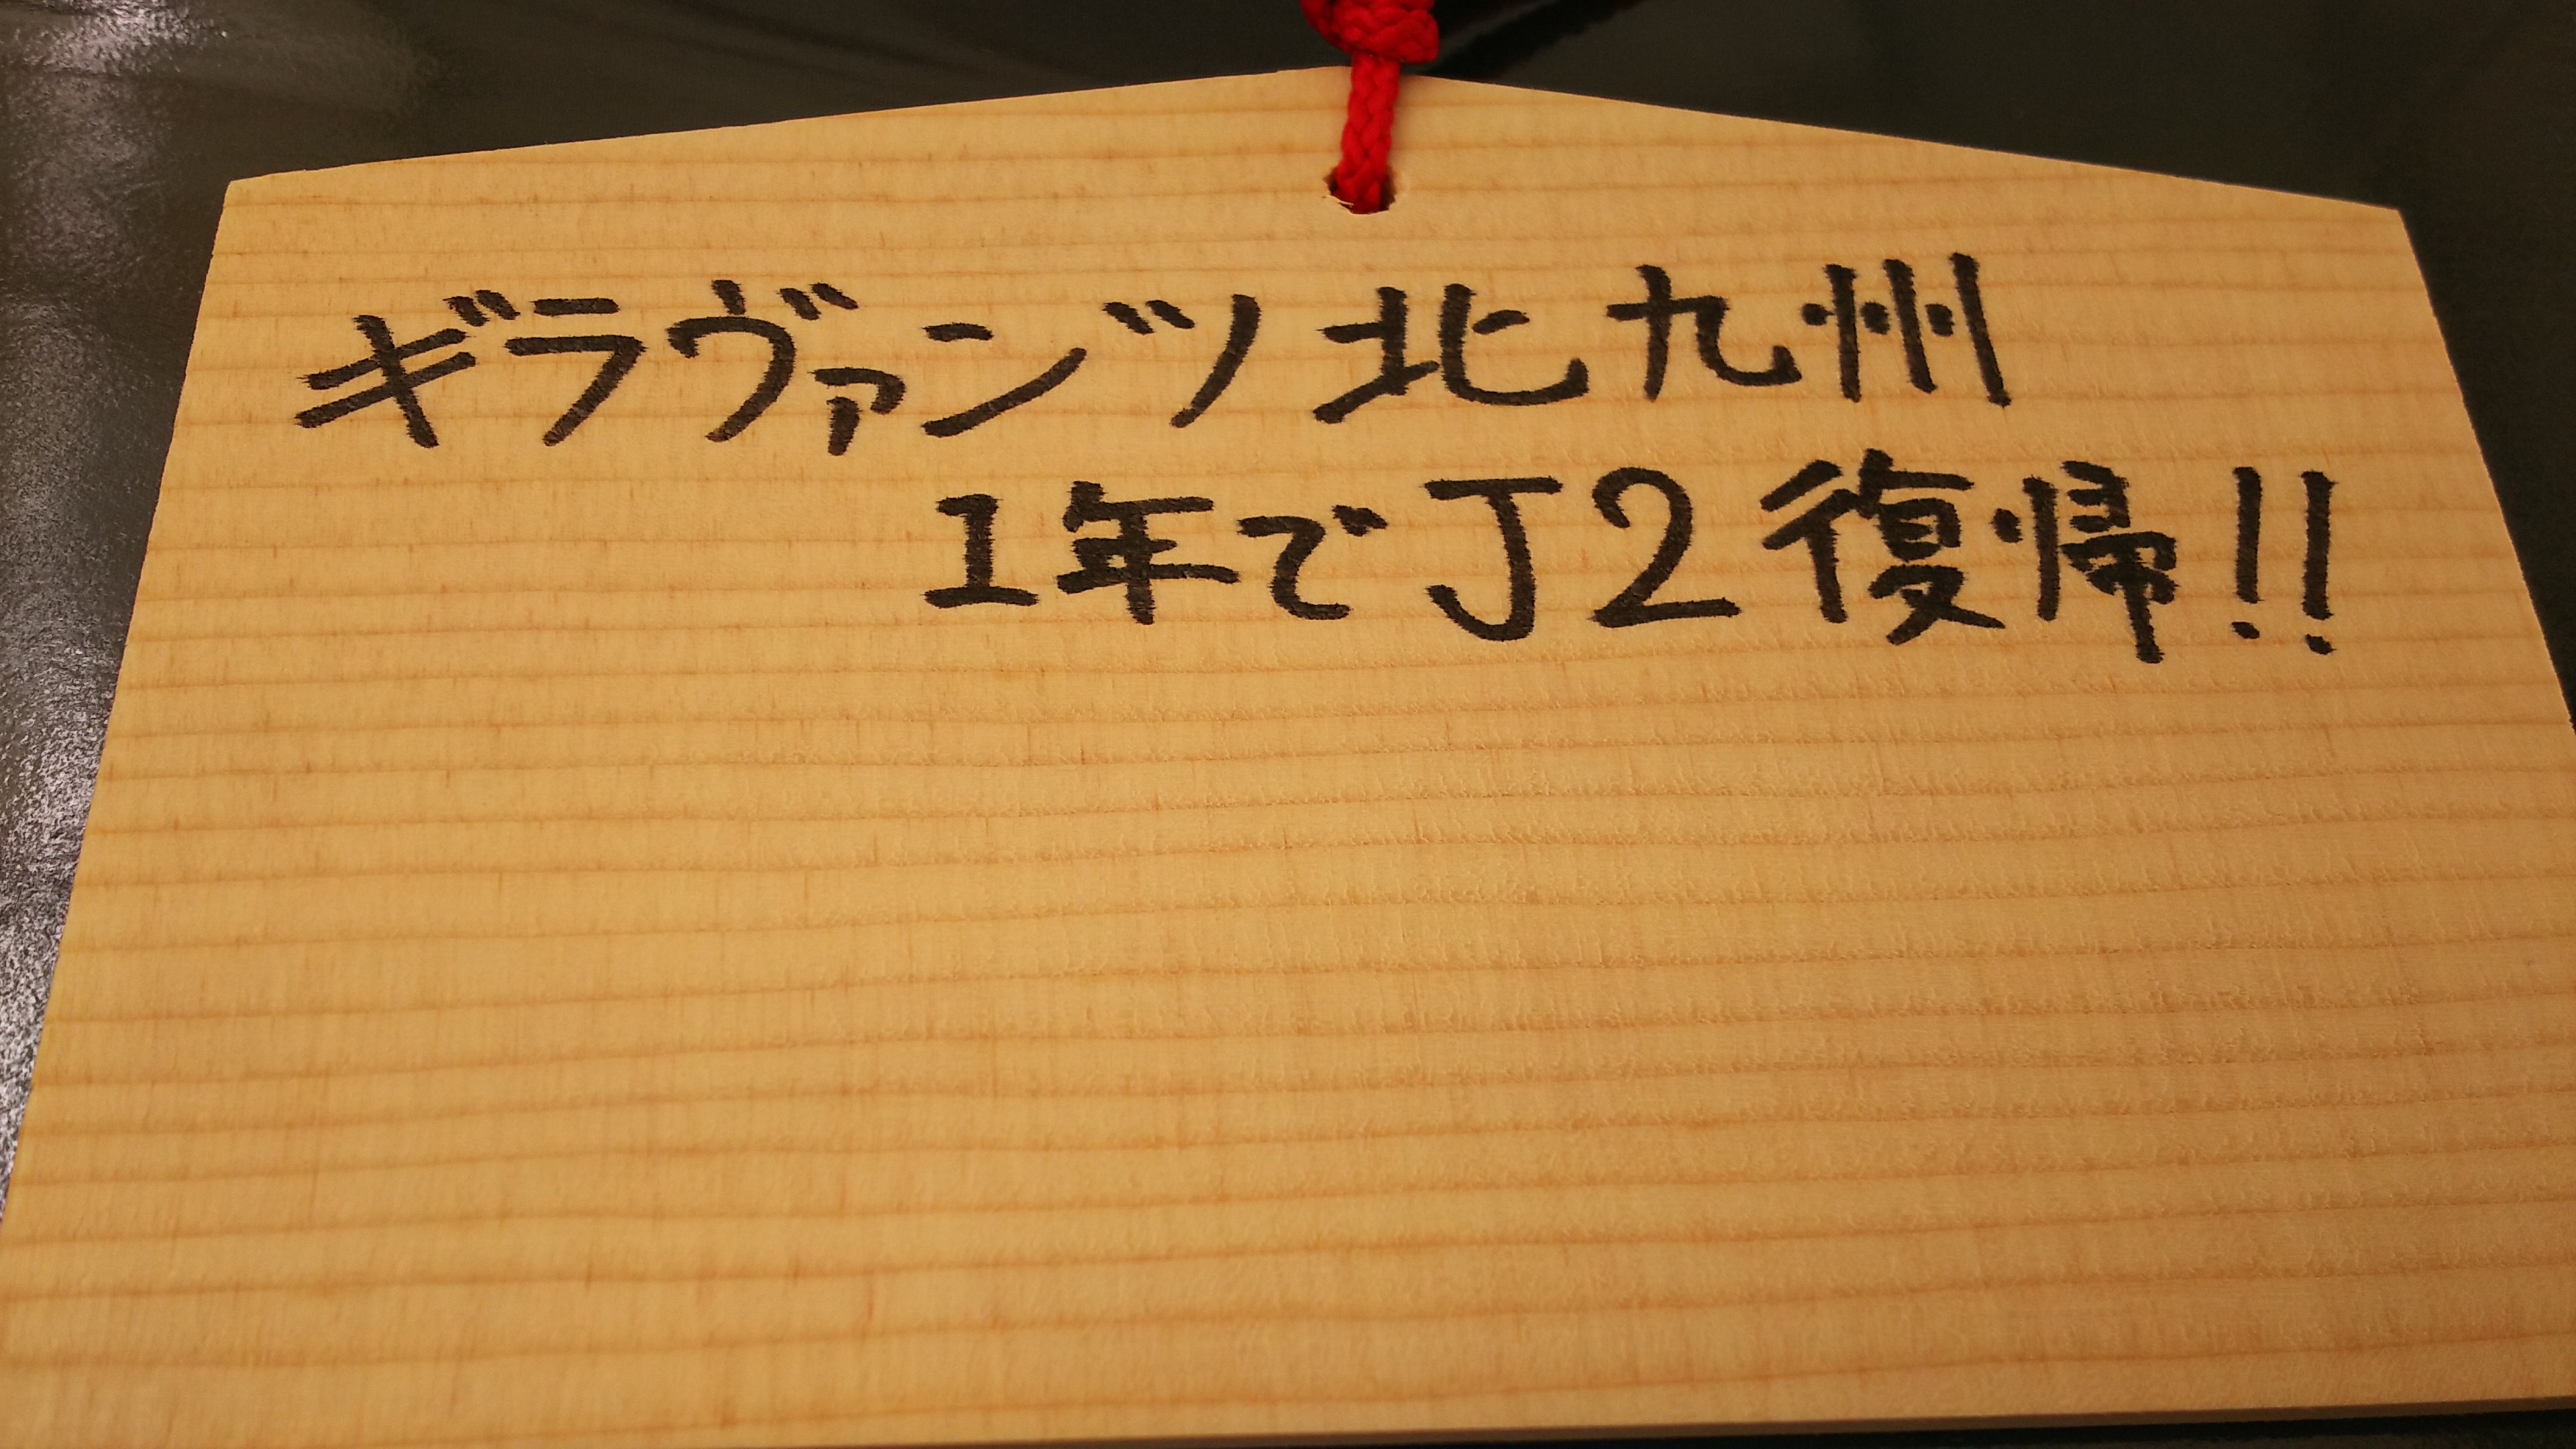 ギラヴァンツ北九州
1年でJ2復帰!!